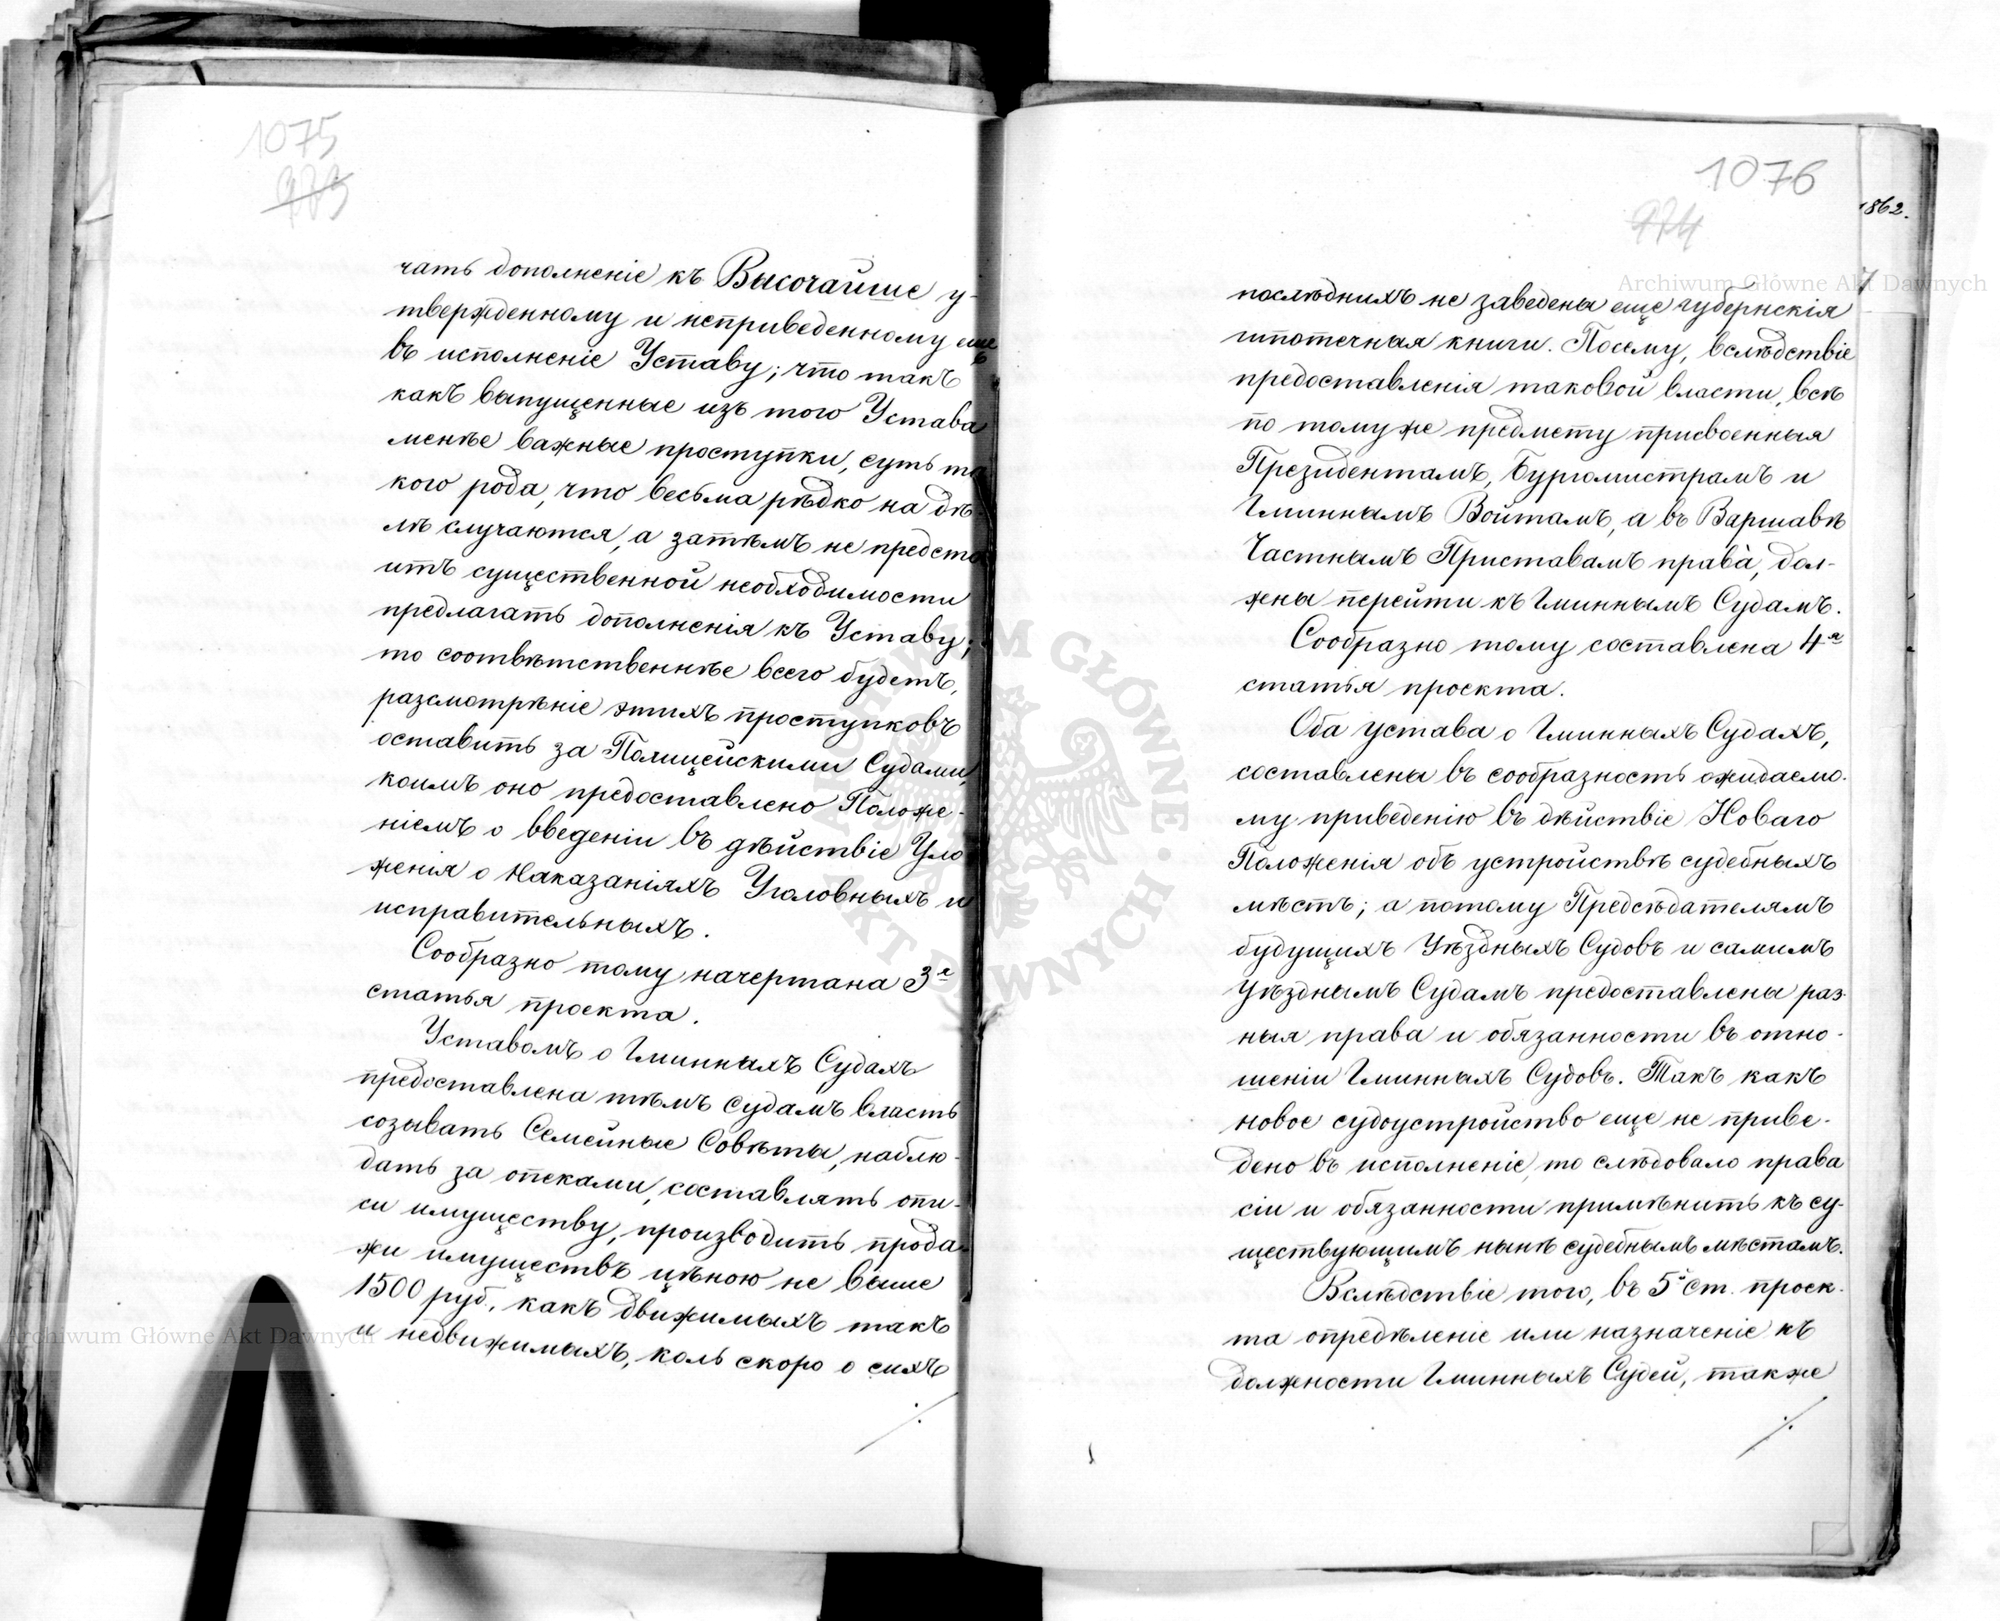 1075
973
чать дополненіе къ Высочайше у-
твержденному и неприведенному еще
въ исполненіе Уставу; что такъ
какъ выпущенные изъ того Устава
менѣе важные проступки, суть та
кого рода, что весьма рѣдко на дѣ-
лѣ случаются, а затѣмъ не предсто
итъ существенной необходимости
предлагать дополненія къ Уставу;
то соотвѣтственнѣе всего будетъ,
разсмотрѣніе этихъ проступковъ
оставить за Полицейскими Судами,
коимъ оно предоставлено Положе-
ніемъ о введеніи въ дѣйствіе Уло
женія о Наказаніяхъ Уголовныхъ и
исправительныхъ.
Сообразно тому начертана 3я
статья проекта.
Уставомъ о Гминныхъ Судахъ
предоставлена тѣмъ судамъ власть
созывать Семейные Совѣты, наблю-
дать за опеками, составлять опи-
си имуществу, производить прода-
жи имуществъ цѣною не выше
1500 руб., какъ движимыхъ такъ
и недвижимыхъ, коль скоро о сихъ
·/.
1076
974
1862.
7
послѣднихъ не заведены еще губернскія
ипотечная книги. Посему, вслѣдствіе
предоставленія таковой власти, всѣ
по тому же предмету присвоенныя
Президентамъ, Бургомистрамъ и
Гминнымъ Войтамъ, а въ Варшавѣ
Частнымъ Приставамъ права̀, дол-
жны перейти къ Гминнымъ Судамъ.
Сообразно тому составлена 4я
статья проекта.
Оба устава о Гминныхъ Судахъ,
составлены въ сообразность ожидаемо-
му приведенію въ дѣйствіе Новаго
Положенія объ устройствѣ судебныхъ
мѣстъ; а потому Предсѣдателямъ
будущихъ Уѣздныхъ Судовъ и самимъ
Уѣзднымъ Судамъ предоставлены раз-
ныя права и обязанности въ отно-
шеніи Гминныхъ Судовъ. Такъ какъ
новое судоустройство еще не приве-
дено въ исполненіе, то слѣдовало права
сіи и обязанности примѣнить къ су-
ществующимъ нынѣ судебнымъ мѣстамъ.
Вслѣдствіе того, въ 5й ст. проек-
та опредѣленіе или назначеніе къ
должности Гминныхъ Судей, также
·/.
Archiwum Główne Akt Dawnych
Archiwum Główne Akt Dawnych
ARCHIWUM GŁÓWNE · AKT DAWNYCH ·